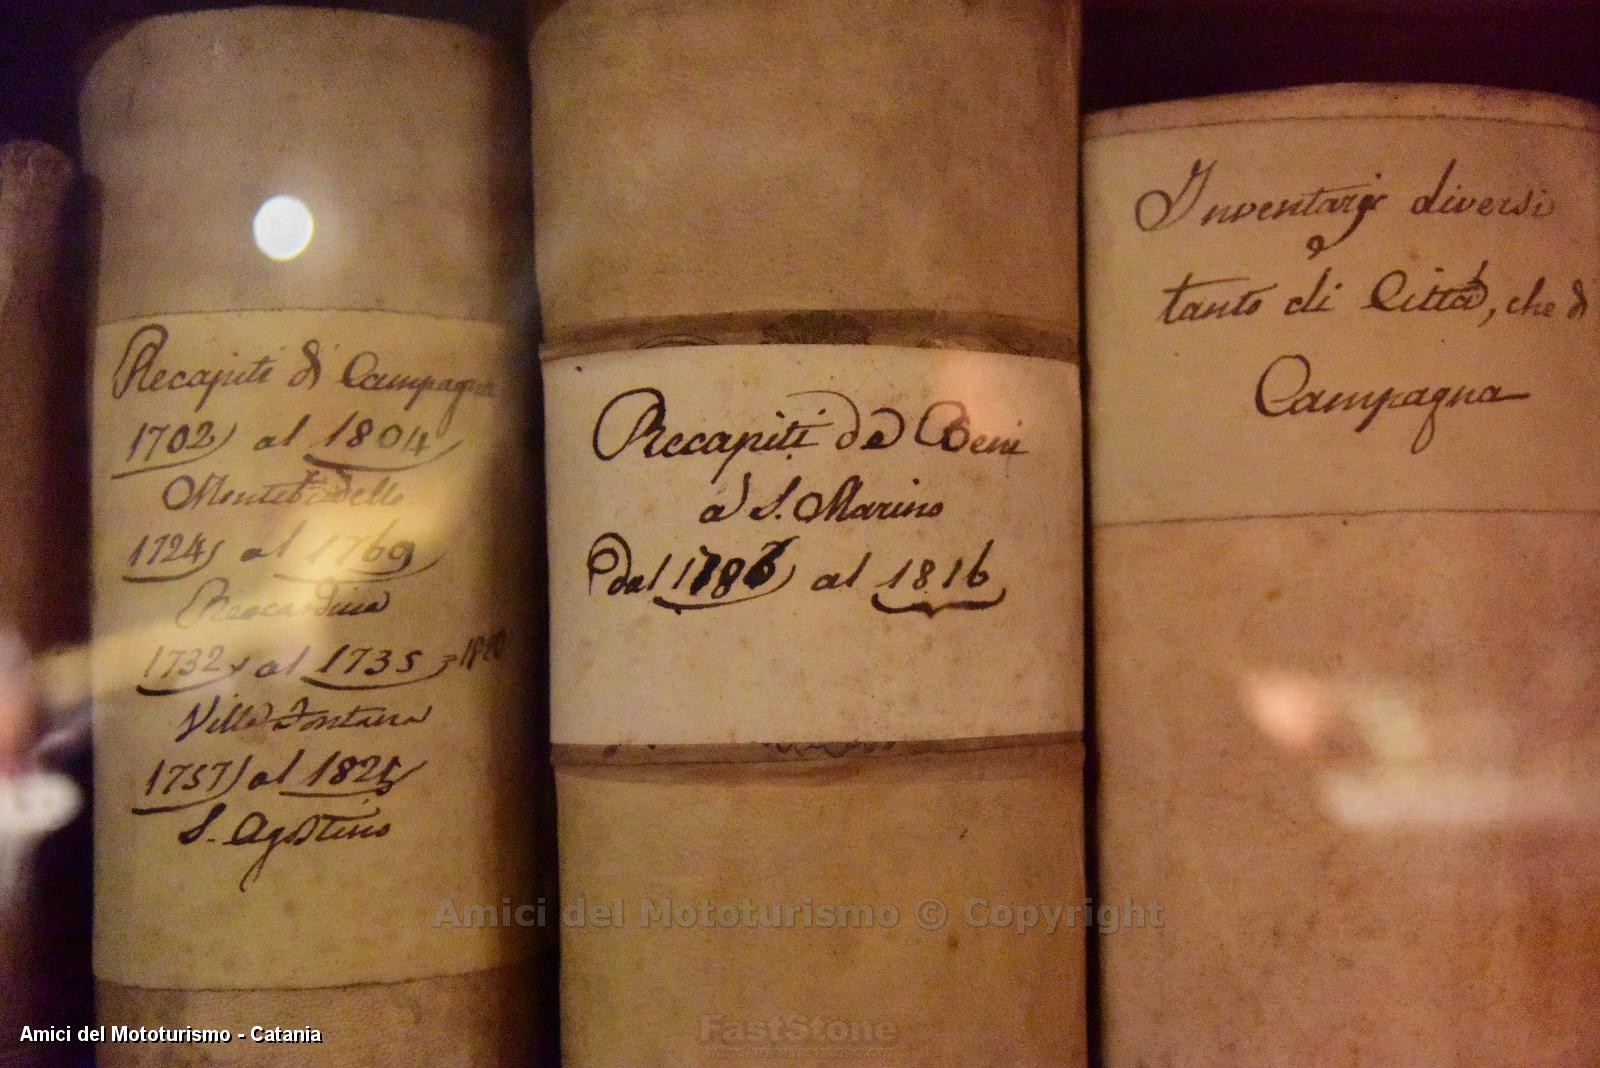 Recapiti di Campagna
1702 al 1804
Montebidello
1724 al 1769
Roncardina
1732 al 1735 1820
Villa Fontana
1757 al 1825
S. Agostino
Recapiti de Beni
a S. Marino
Dal 1786 al 1816
Inventarj diversi
tanto di Città, che di
Campagna
Amici del Mototurismo © Copyright
FastStone
Amici del Mototurismo - Catania